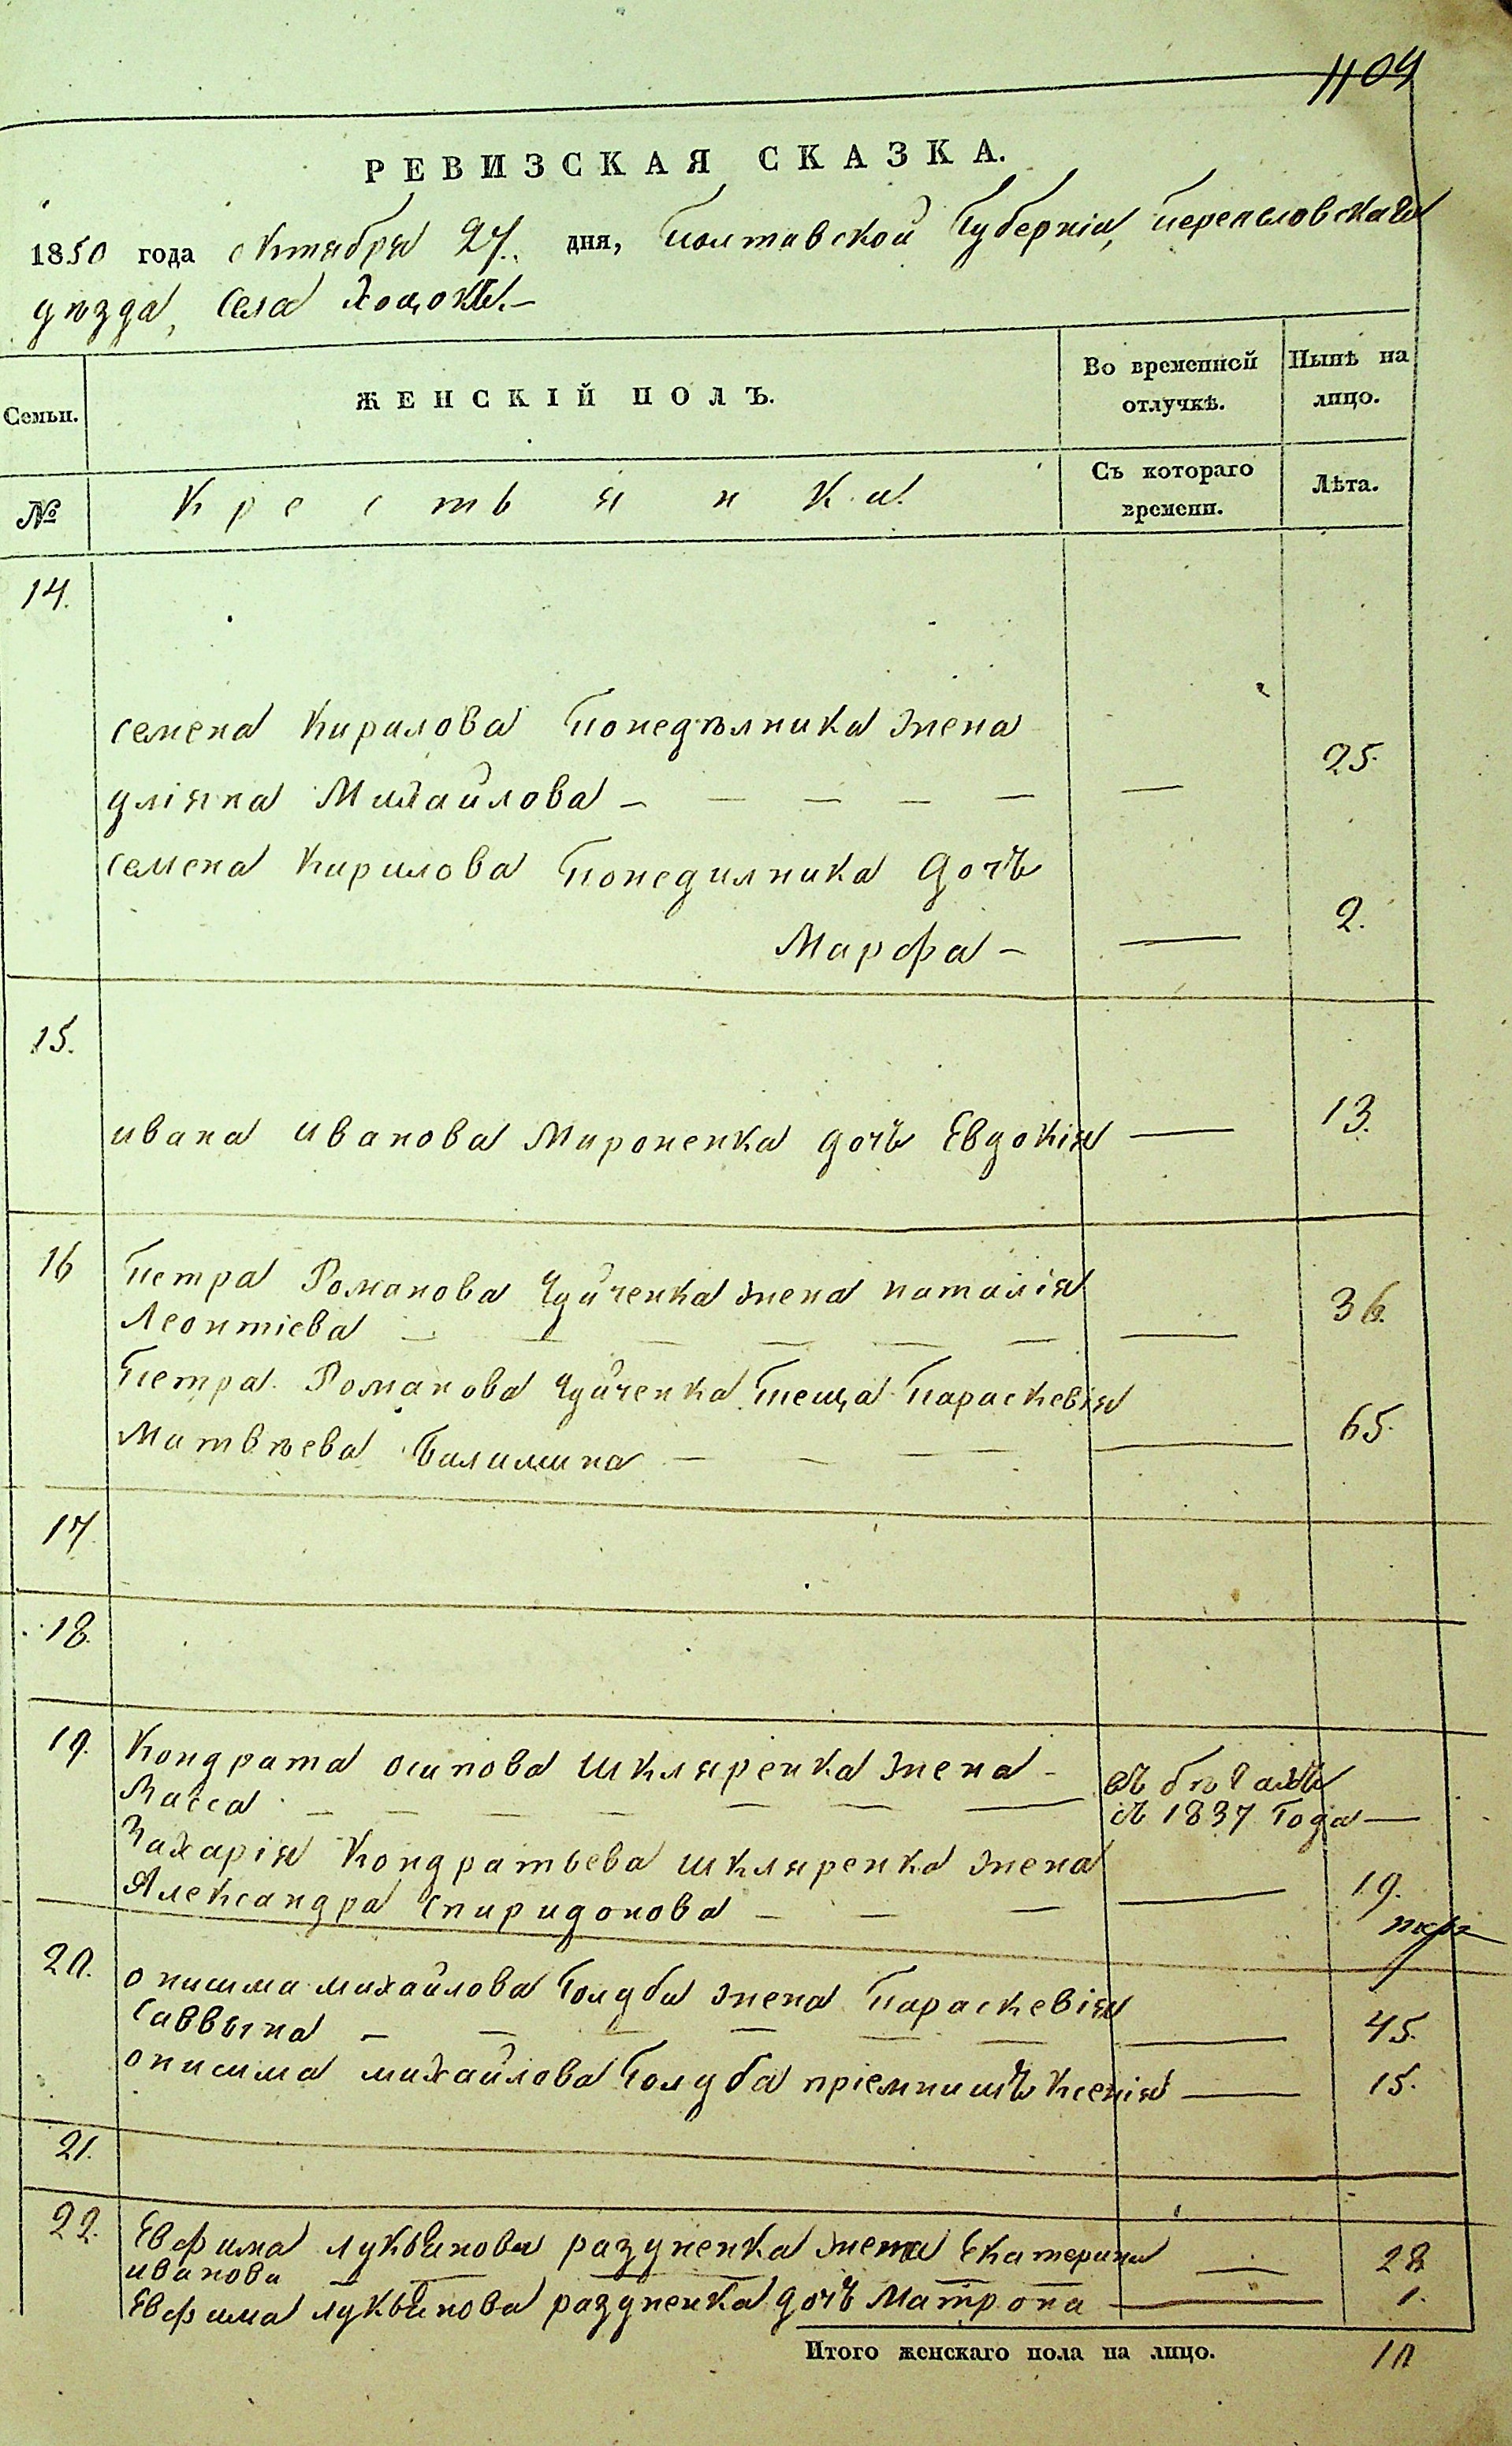 1109
РЕВИЗСКАЯ СКАЗКА.
1850 года октября 27. дня, Полтавской Губерніи, Переясловскаго
уѣзда, Села Хоцокъ.—
Семьи. ЖЕНСКІЙ ПОЛЪ. Во временной отлучкѣ. Нынѣ на лицо.
№ Крестьянки. Съ котораго времени. Лѣта.
14.
Семена Кирилова Понедѣлника жена
Уліяна Михайлова — — — — — — 25.
Семена Кирилова Понедилника дочъ
Марфа — — 2.
15.
Ивана Иванова Мироненка дочъ Евдокія — 13.
16 Петра Романова Чуйченка жена Наталія
Леонтіева — — — — — — — 36.
Петра Романова Чуйченка теща Параскевія
Матвѣева Балашина — — — — — 65.
17.
18.
19. Кондрата Осипова Шкляренка жена — въ бѣгахъ
Васса — — — — — — — съ 1837 Года —
Захарія Кондратьева Шкляренка жена
Александра Спиридонова — — — — 19.
20. Онисима Михайлова Голуба жена Параскевія
Саввина — — — — — — — 45.
Онисима Михайлова Голуба пріемышъ Ксенія — 15.
21.
22. Евфима Лукьянова Разуненка жена Екатерина
Иванова — — — — — — — 28
Евфима Лукьянова Разуненка дочъ Матрона — 1.
Итого женскаго пола на лицо. 10